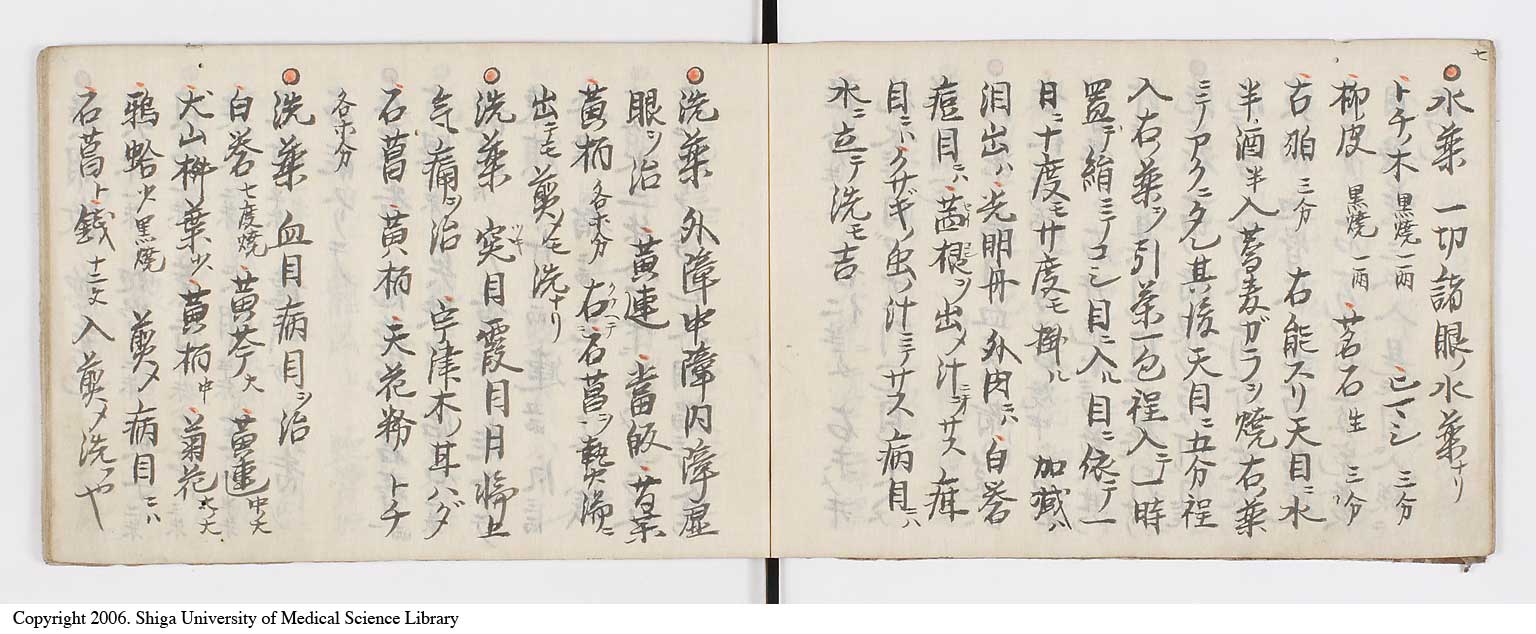 七
水薬 一切諸眼ノ水薬ナリ
トチノ木 黒焼一両 三分
柳皮 黒焼一両 茗石 生 三分
古狛 三分 右能スリ天目ニ水
半酒半入蕎麦ガラヲ焼右ノ薬
ミテアクニタレ其後天目ニ五分程
入右ノ薬ヲ引茶一包程入テ一時
置テ絹ミテコシ目ニ入ル目ニ依テ一
日ニ十度モ廿度モ掛ル 加減ハ
泪出ハ光明丹 外肉ニハ白礬
痘目ニハ茜根ヲ出メ汁ニテサス 痳
目ニハクサギノ虫ノ汁ミテサス 病目ニハ
水ニ立テ洗モ吉
洗薬 外障中障内障虚
眼ヲ治 黄連 当皈
黄柄 各等分 右ニ石菖ヲ熱湯ニ
出テモ煎メモ洗ナリ
洗薬 突目霞目
気ノ痛ヲ治 宇津木ノ耳ハダ
石菖 黄柄 天花粉 トチ
各等分
洗薬 血目病目ヲ治
白礬 七度焼 黄芩 大 黄連 中大
犬山椒葉 少 黄柄 中 菊花 大大
鴉蛤 少黒焼 煎メ病目ニハ
石菖ト銭十二文入煎メ洗ツや
Copyright 2006. Shiga University of Medical Science Library